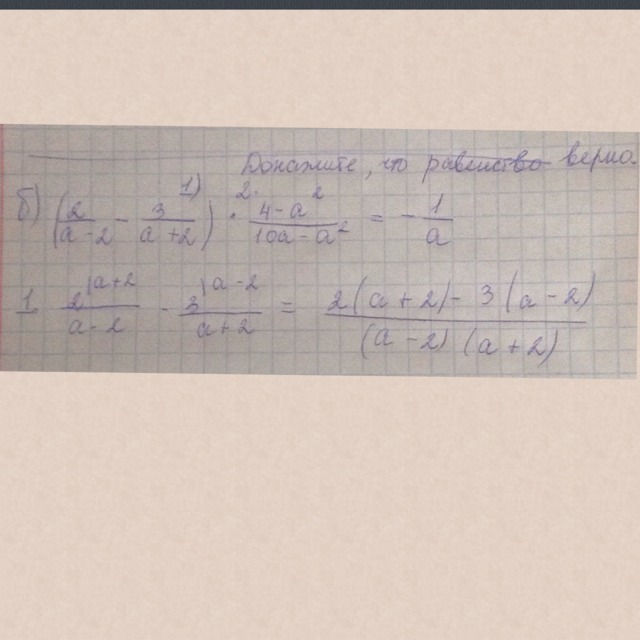 Докажите, что равенство верно.
1) 2.
б) (2/(a-2) - 3/(a+2)) · (4-a²)/(10a-a²) = -1/a
1 2^{|a+2}/(a-2) - 3^{|a-2}/(a+2) = (2(a+2)-3(a-2))/((a-2)(a+2))